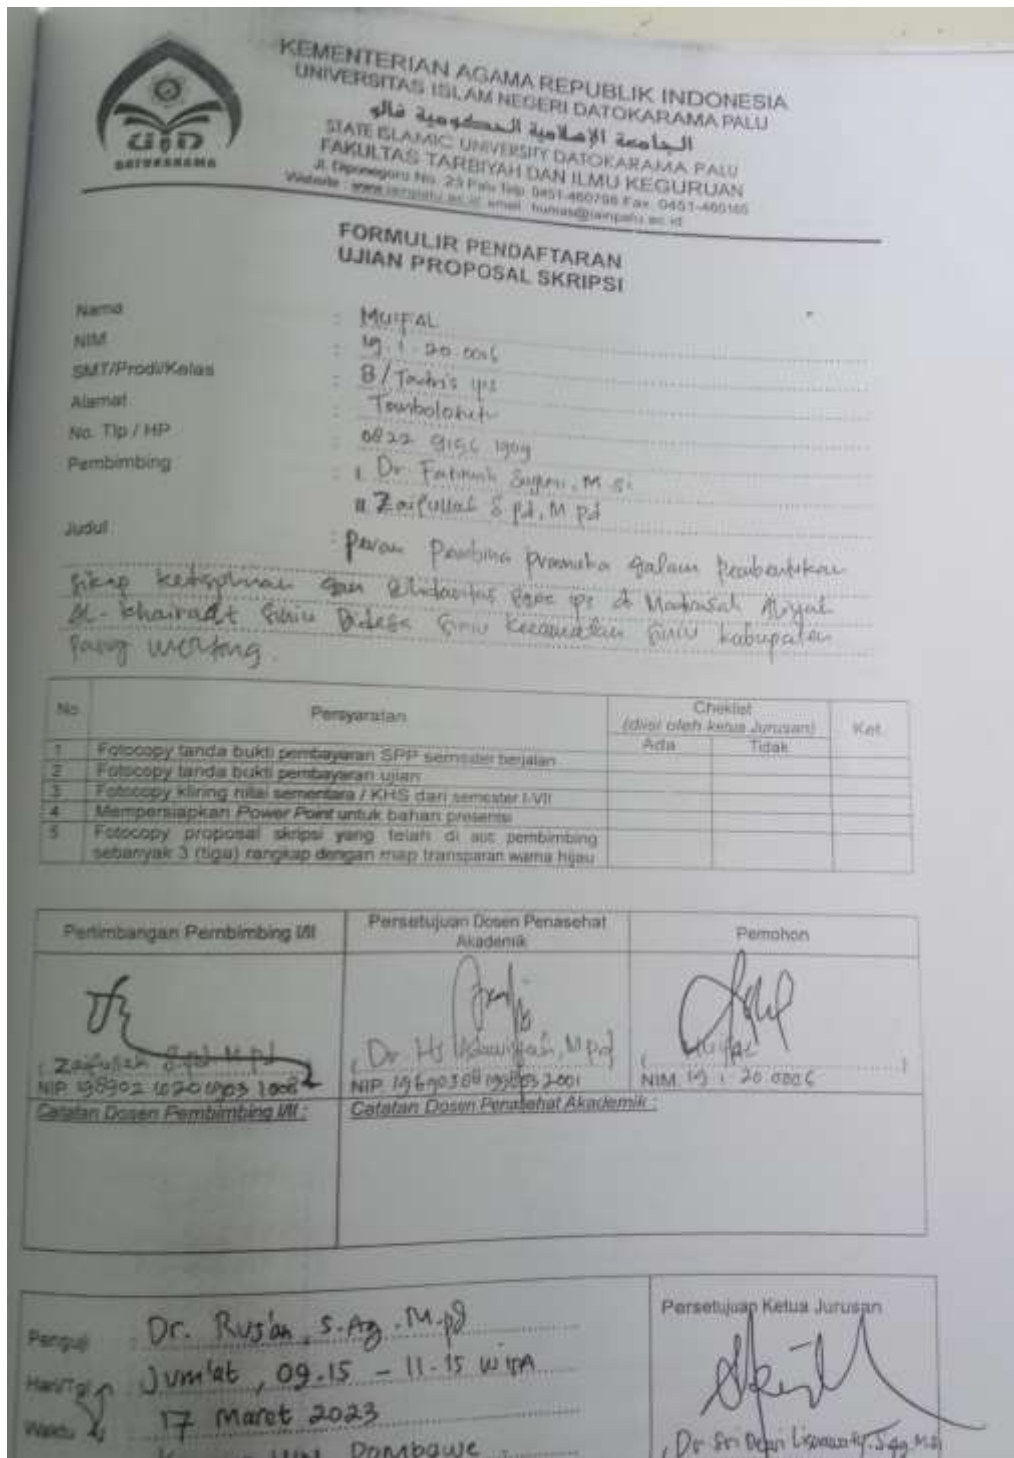 KEMENTERIAN AGAMA REPUBLIK INDONESIA
UNIVERSITAS ISLAM NEGERI DATOKARAMA PALU
الجامعة الإسلامية الحكومية فالو
STATE ISLAMIC UNIVERSITY DATOKARAMA PALU
FAKULTAS TARBIYAH DAN ILMU KEGURUAN
Jl. Diponegoro No. 23 Palu Telp. 0451-460798 Fax. 0451-460165
Website : www.iainpalu.ac.id email : humas@iainpalu.ac.id
DATOKARAMA
FORMULIR PENDAFTARAN
UJIAN PROPOSAL SKRIPSI
Nama : MUIFAL
NIM : 19.1.20.0006
SMT/Prodi/Kelas : 8/Tadris ips
Alamat :
No. Tlp / HP : 0822 9156 1909
Pembimbing : I. Dr. Fatimah M.Si
II. Zaifullah S.Pd, M.Pd
Judul : Peran Pembina Pramuka dalam Pembentukan
Sikap kedisplinan dan Solidaritas ips di Madrasah Aliyah
Al-khairaat Siniu Didesa Siniu Kecamatan Siniu kabupaten
Parigi
No Persyaratan Cheklist (diisi oleh ketua Jurusan) Ket.
Ada Tidak
1 Fotocopy tanda bukti pembayaran SPP semester berjalan
2 Fotocopy tanda bukti pembayaran ujian
3 Fotocopy kliring nilai sementara / KHS dari semester I-VII
4 Mempersiapkan Power Point untuk bahan presentsi
5 Fotocopy proposal skripsi yang telah di acc pembimbing
sebanyak 3 (tiga) rangkap dengan map transparan warna hijau
Pertimbangan Pembimbing I/II Persetujuan Dosen Penasehat Akademik Pemohon
( Zaifullah S.pd M.pd ) ( Dr. Hj. M.Pd ) ( Muifal )
NIP. NIP. NIM. 19.1.20.0006
Catatan Dosen Pembimbing I/II : Catatan Dosen Penasehat Akademik :
Penguji : Dr. Rus'an, S.Ag. M.pd
Persetujuan Ketua Jurusan
Hari/Tgl : Jum'at, 09.15 - 11.15 WITA
Waktu : 17 Maret 2023
Dombawe
Dr. Sri Dewi Lisnawaty, S.Ag, M.Si